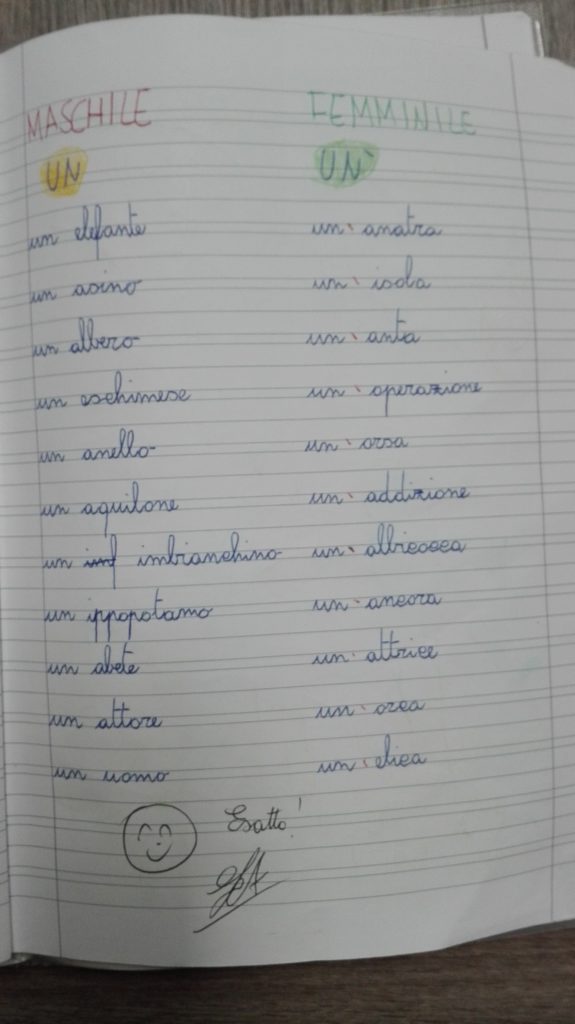 MASCHILE FEMMINILE
UN UN'
un elefante un' anatra
un asino un' isola
un albero un' anta
un eschimese un' operazione
un anello un' orsa
un aquilone un' addizione
un imf imbianchino un' albicocca
un ippopotamo un' ancora
un abete un' attrice
un attore un' orca
un uomo un' elica
Esatto!